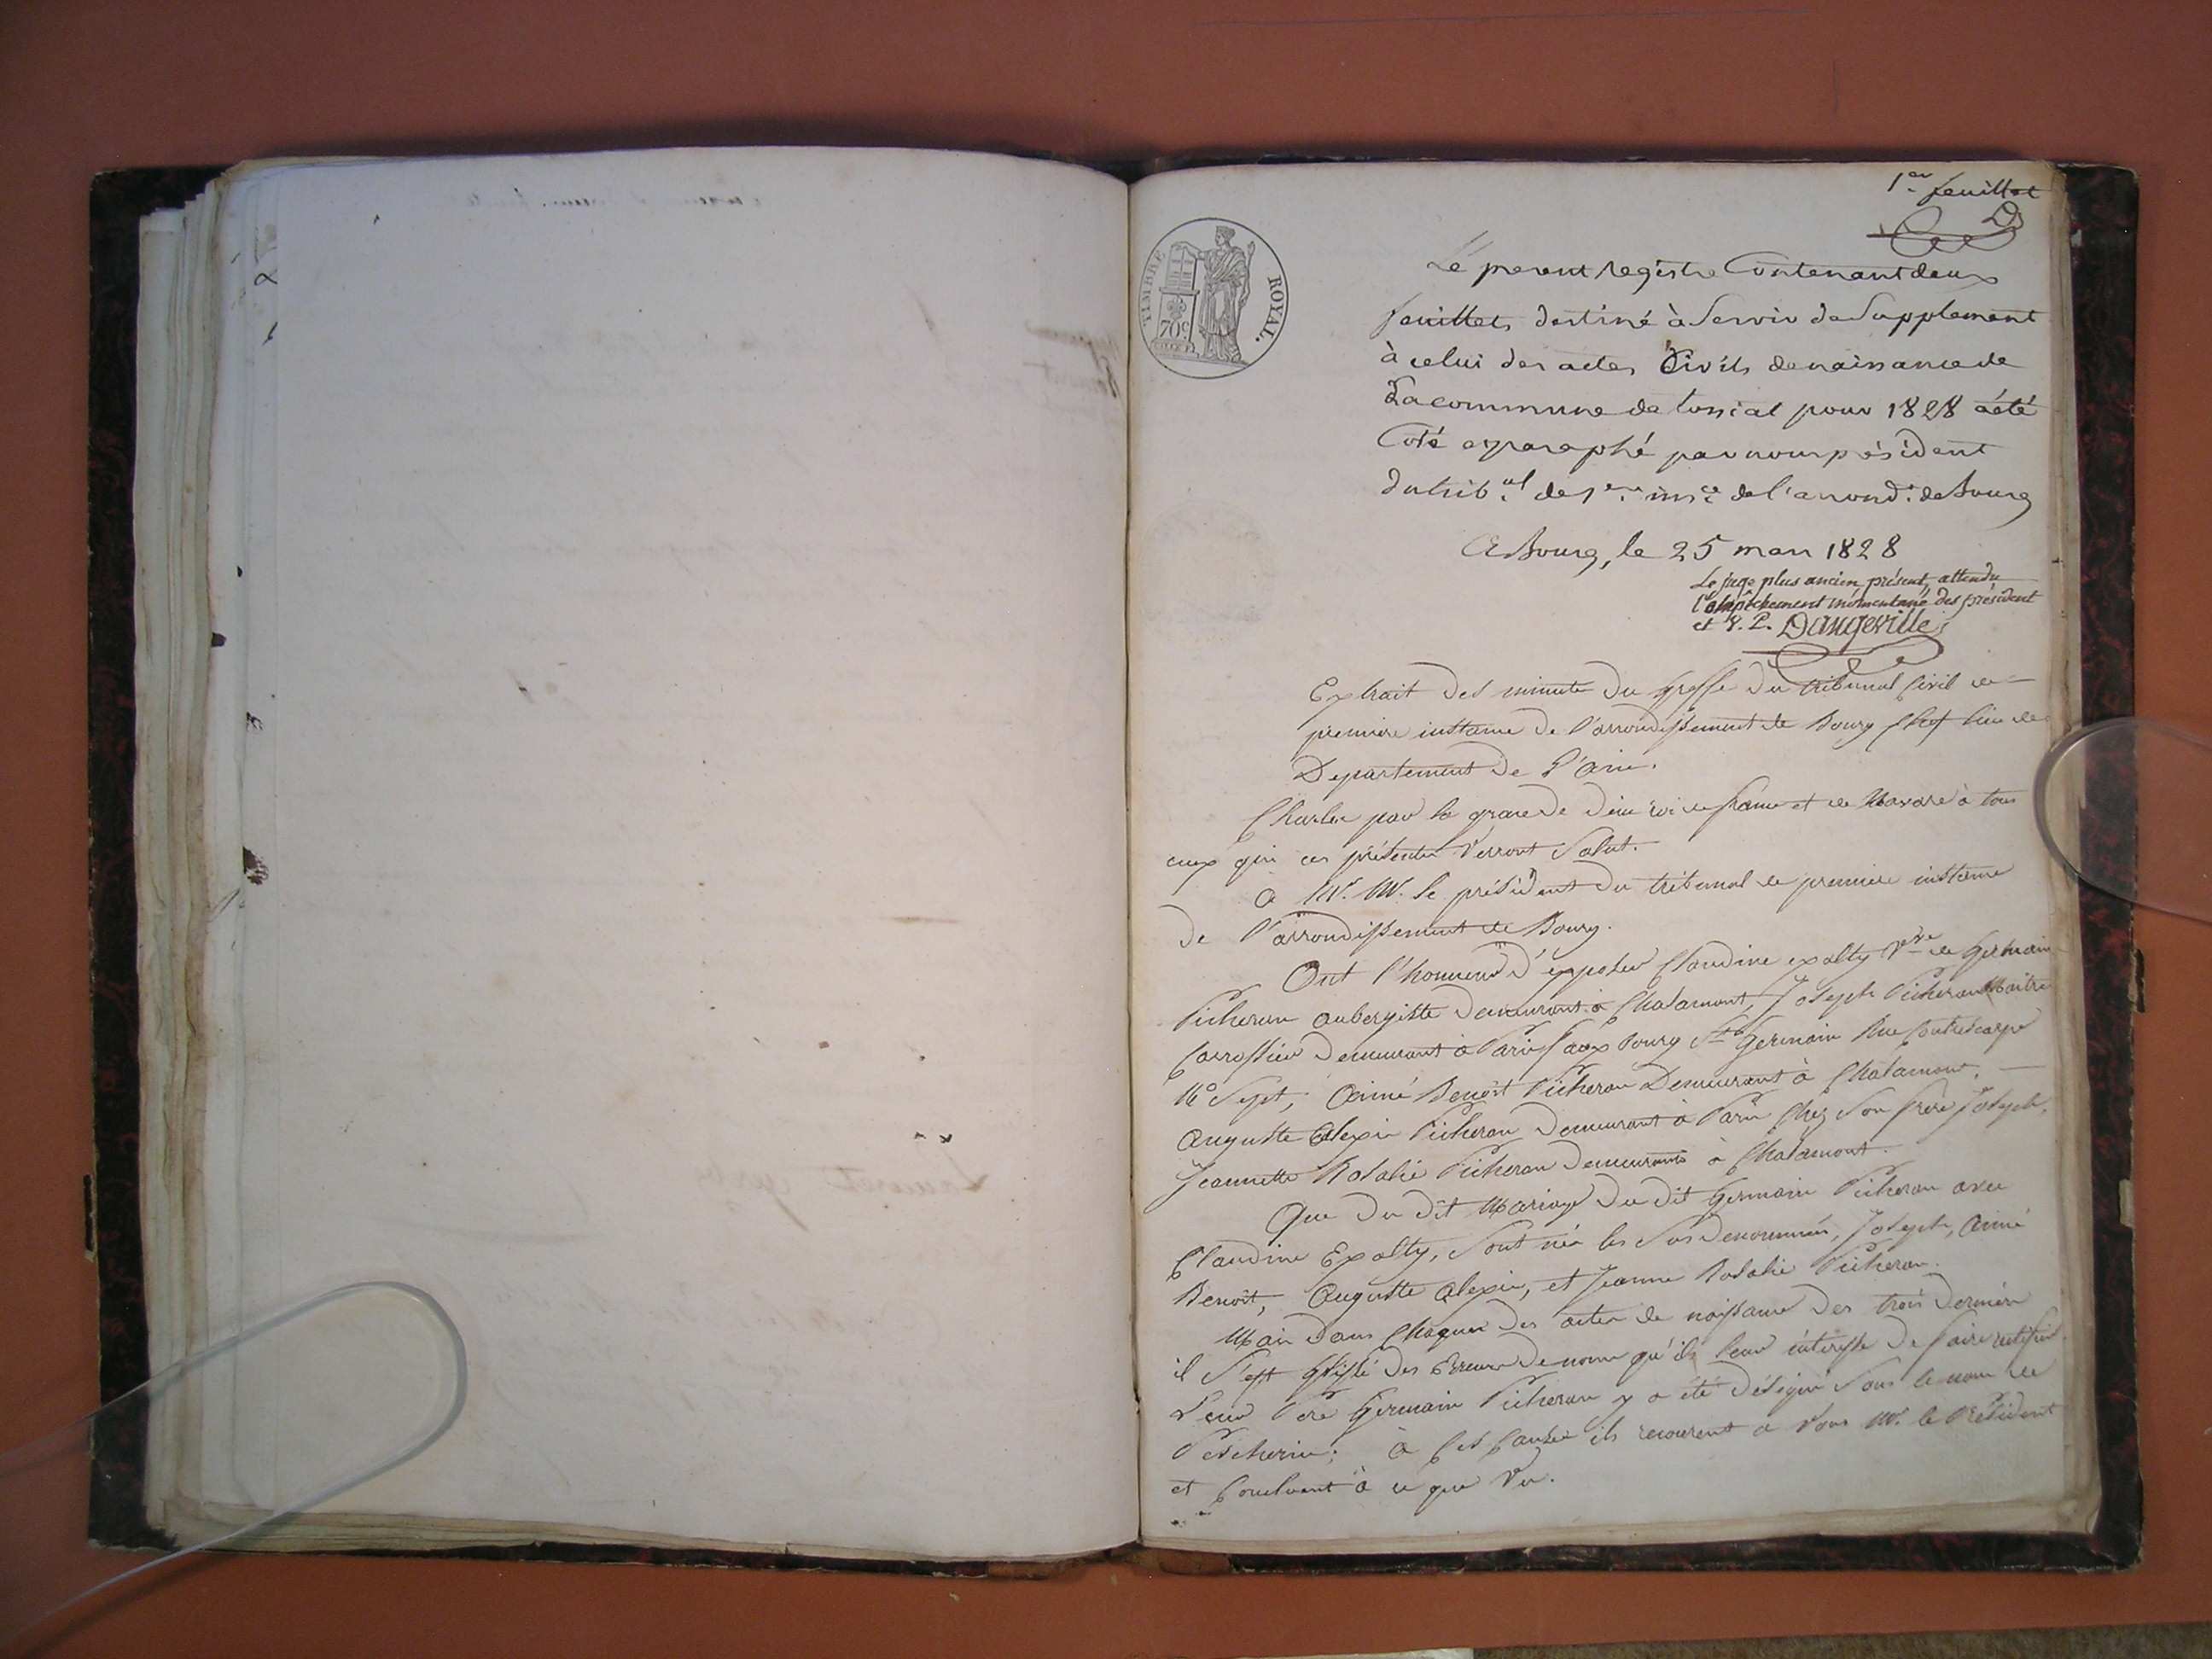 1er feuillet
TIMBRE ROYAL.
70c
Le present registre Contenant deux
feuillets destiné à Servir de Supplement
à celui des actes Civils de naissance de
La commune de tossiat pour 1828 a été
Coté et paraphé par nous président
du trib.al de 1ere insce de l'arrond.t de Bourg
A Bourg, le 25 mars 1828
Le juge plus ancien présent, attendu
l'empêchement momentané des président
et V. P. Dangeville
Extrait des minutes du Greffe du tribunal Civil de
premiere instance de l'arrondissement de Bourg Chef lieu de
Departement de l'ain.
Charles par la grace de dieu roi de france et de Navarre à tous
ceux qui ces présentes Verront Salut.
A M. M. le président du tribunal de premiere instance
de l'arrondissement de Bourg.
Ont l'honneur d'exposer Claudine expalty Vve de Germain
Picheran aubergiste demeurant à Chalamont, Joseph Picheran Maitre
Carrossier demeurant à Paris faux bourg St Germain Rue Contrescarpe
No Sept; Aimé Benoît Picheran Demeurant à Chalamont,
Auguste Alexis Picheran Demeurant à Paris Chez Son frère Joseph,
Jeannette Rosalie Picheran demeurante à Chalamont.
Que du dit Mariage du dit Germain Picheran avec
Claudine Expalty, Sont nés les Sus denommés, Joseph, Aimé
Benoît, Auguste Alexis, et Jeanne Rosalie Picheran.
Mais dans Chaqun des actes de naissance des trois derniers
il s'est glissé des Erreurs de noms qu'il leur interesse de faire rectifier
Leur Pere Germain Picheran y a été désigné Sous le nom de
Petcherin; à Ces Causes ils recourent a Vous M. le Président
et Concluent à ce que Vu.